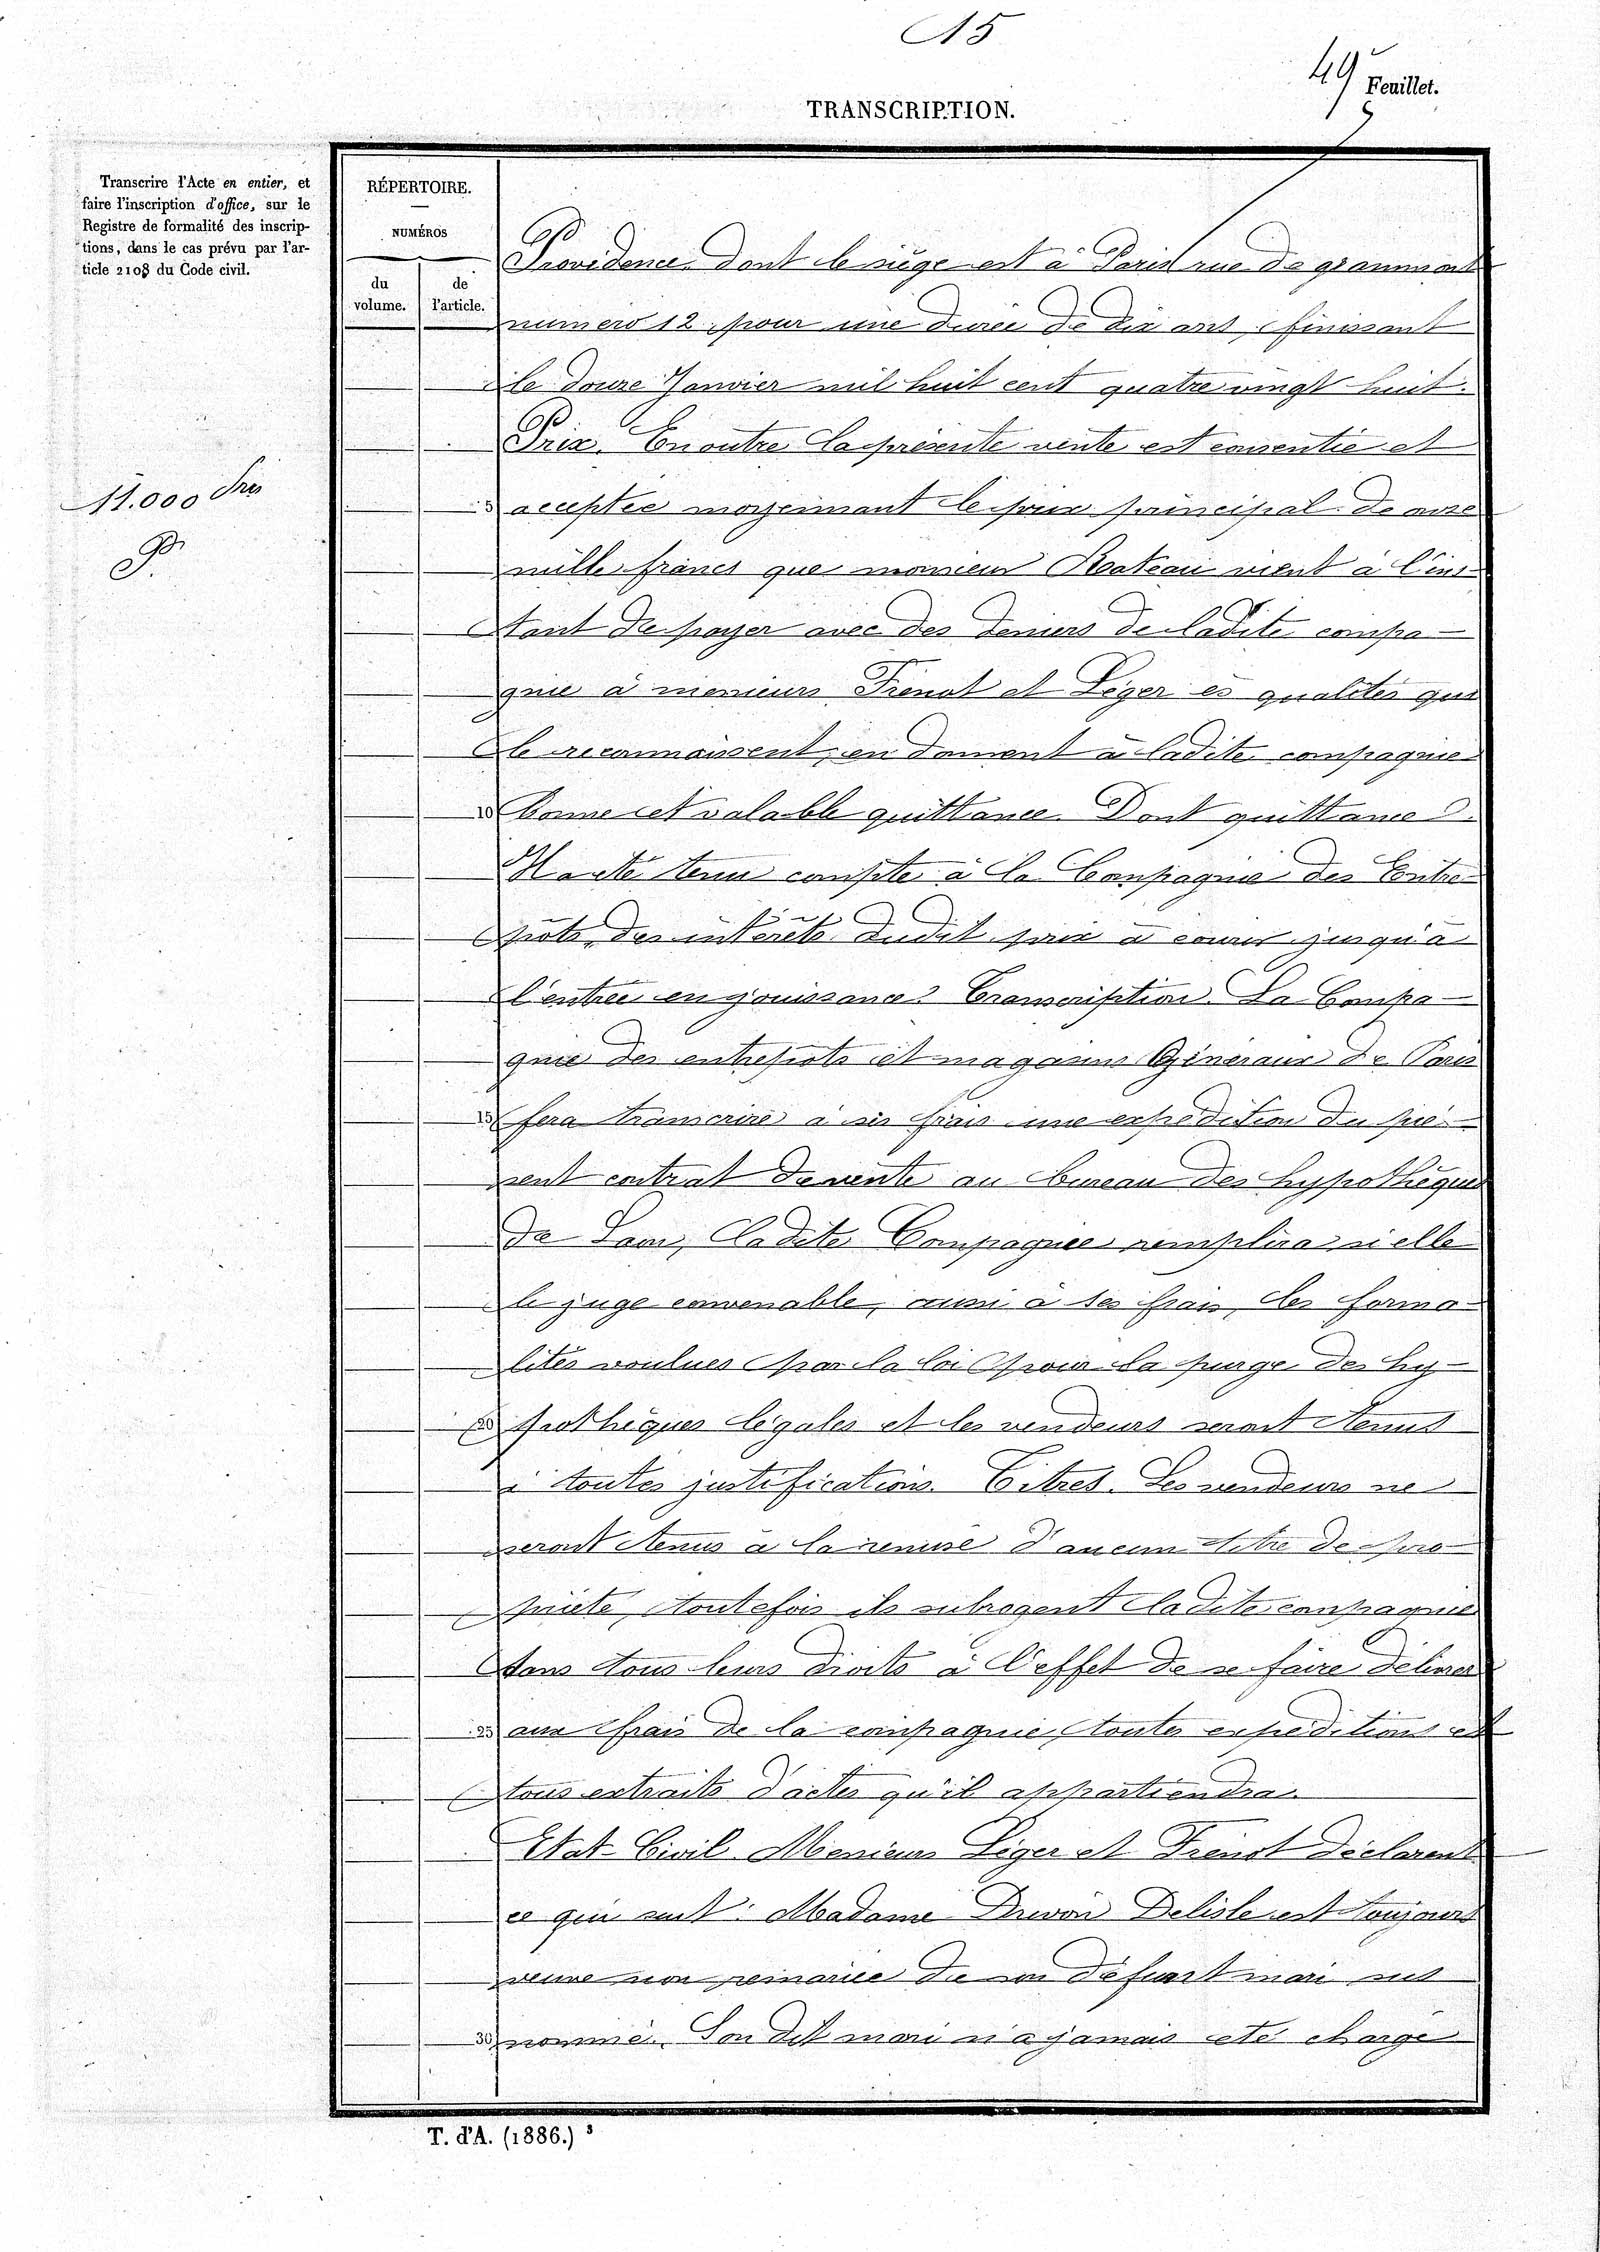 15
49e Feuillet.
TRANSCRIPTION.
Transcrire l'Acte en entier, et
faire l'inscription d'office, sur le
Registre de formalité des inscrip-
tions, dans le cas prévu par l'ar-
ticle 2108 du Code civil.
RÉPERTOIRE.
NUMÉROS
du
volume.
de
l'article.
Providence, dont le siège est à Paris rue de grammont
numéro 12, pour une durée de dix ans, finissant
le douze Janvier mil huit cent quatre vingt huit.
Prix. En outre la présente vente est consentie et
11.000
P.
5 acceptée moyennant le prix principal de onze
mille francs que monsieur Rateau vient à l'ins-
tant de payer avec des deniers de ladite compa-
gnie à messieurs Frenot et Léger ès qualités qui
le reconnaissent, en donnent à ladite compagnie
10 bonne et valable quittance. Dont quittance.
Il a été tenu compte à la Compagnie des Entre-
pôts, des intérêts dudit prix à courir jusqu'à
l'entrée en jouissance. Transcription. La Compa-
gnie des entrepots et magasins Généraux de Paris
15 fera transcrire à ses frais une expédition du pré-
sent contrat de vente au bureau des hypothèques
de Laon, ladite Compagnie remplira si elle
le juge convenable, aussi à ses frais, les forma-
lités voulues par la loi pour la purge des hy-
20 pothèques légales et les vendeurs seront tenus
à toutes justifications. Titres. Les vendeurs ne
seront tenus à la remise d'aucun titre de pro-
priété, toutefois ils subrogent ladite compagnie
dans tous leurs droits à l'effet de se faire délivrer
25 aux frais de la compagnie, toutes expéditions et
tous extraits d'actes qu'il appartiendra.
Etat-Civil. Messieurs Léger et Frenot déclarent
ce qui suit: Madame Delisle est toujours
veuve non remariée de son défunt mari sus
30 nommé. Son dit mari n'a jamais été chargé
T. d'A. (1886.) 3